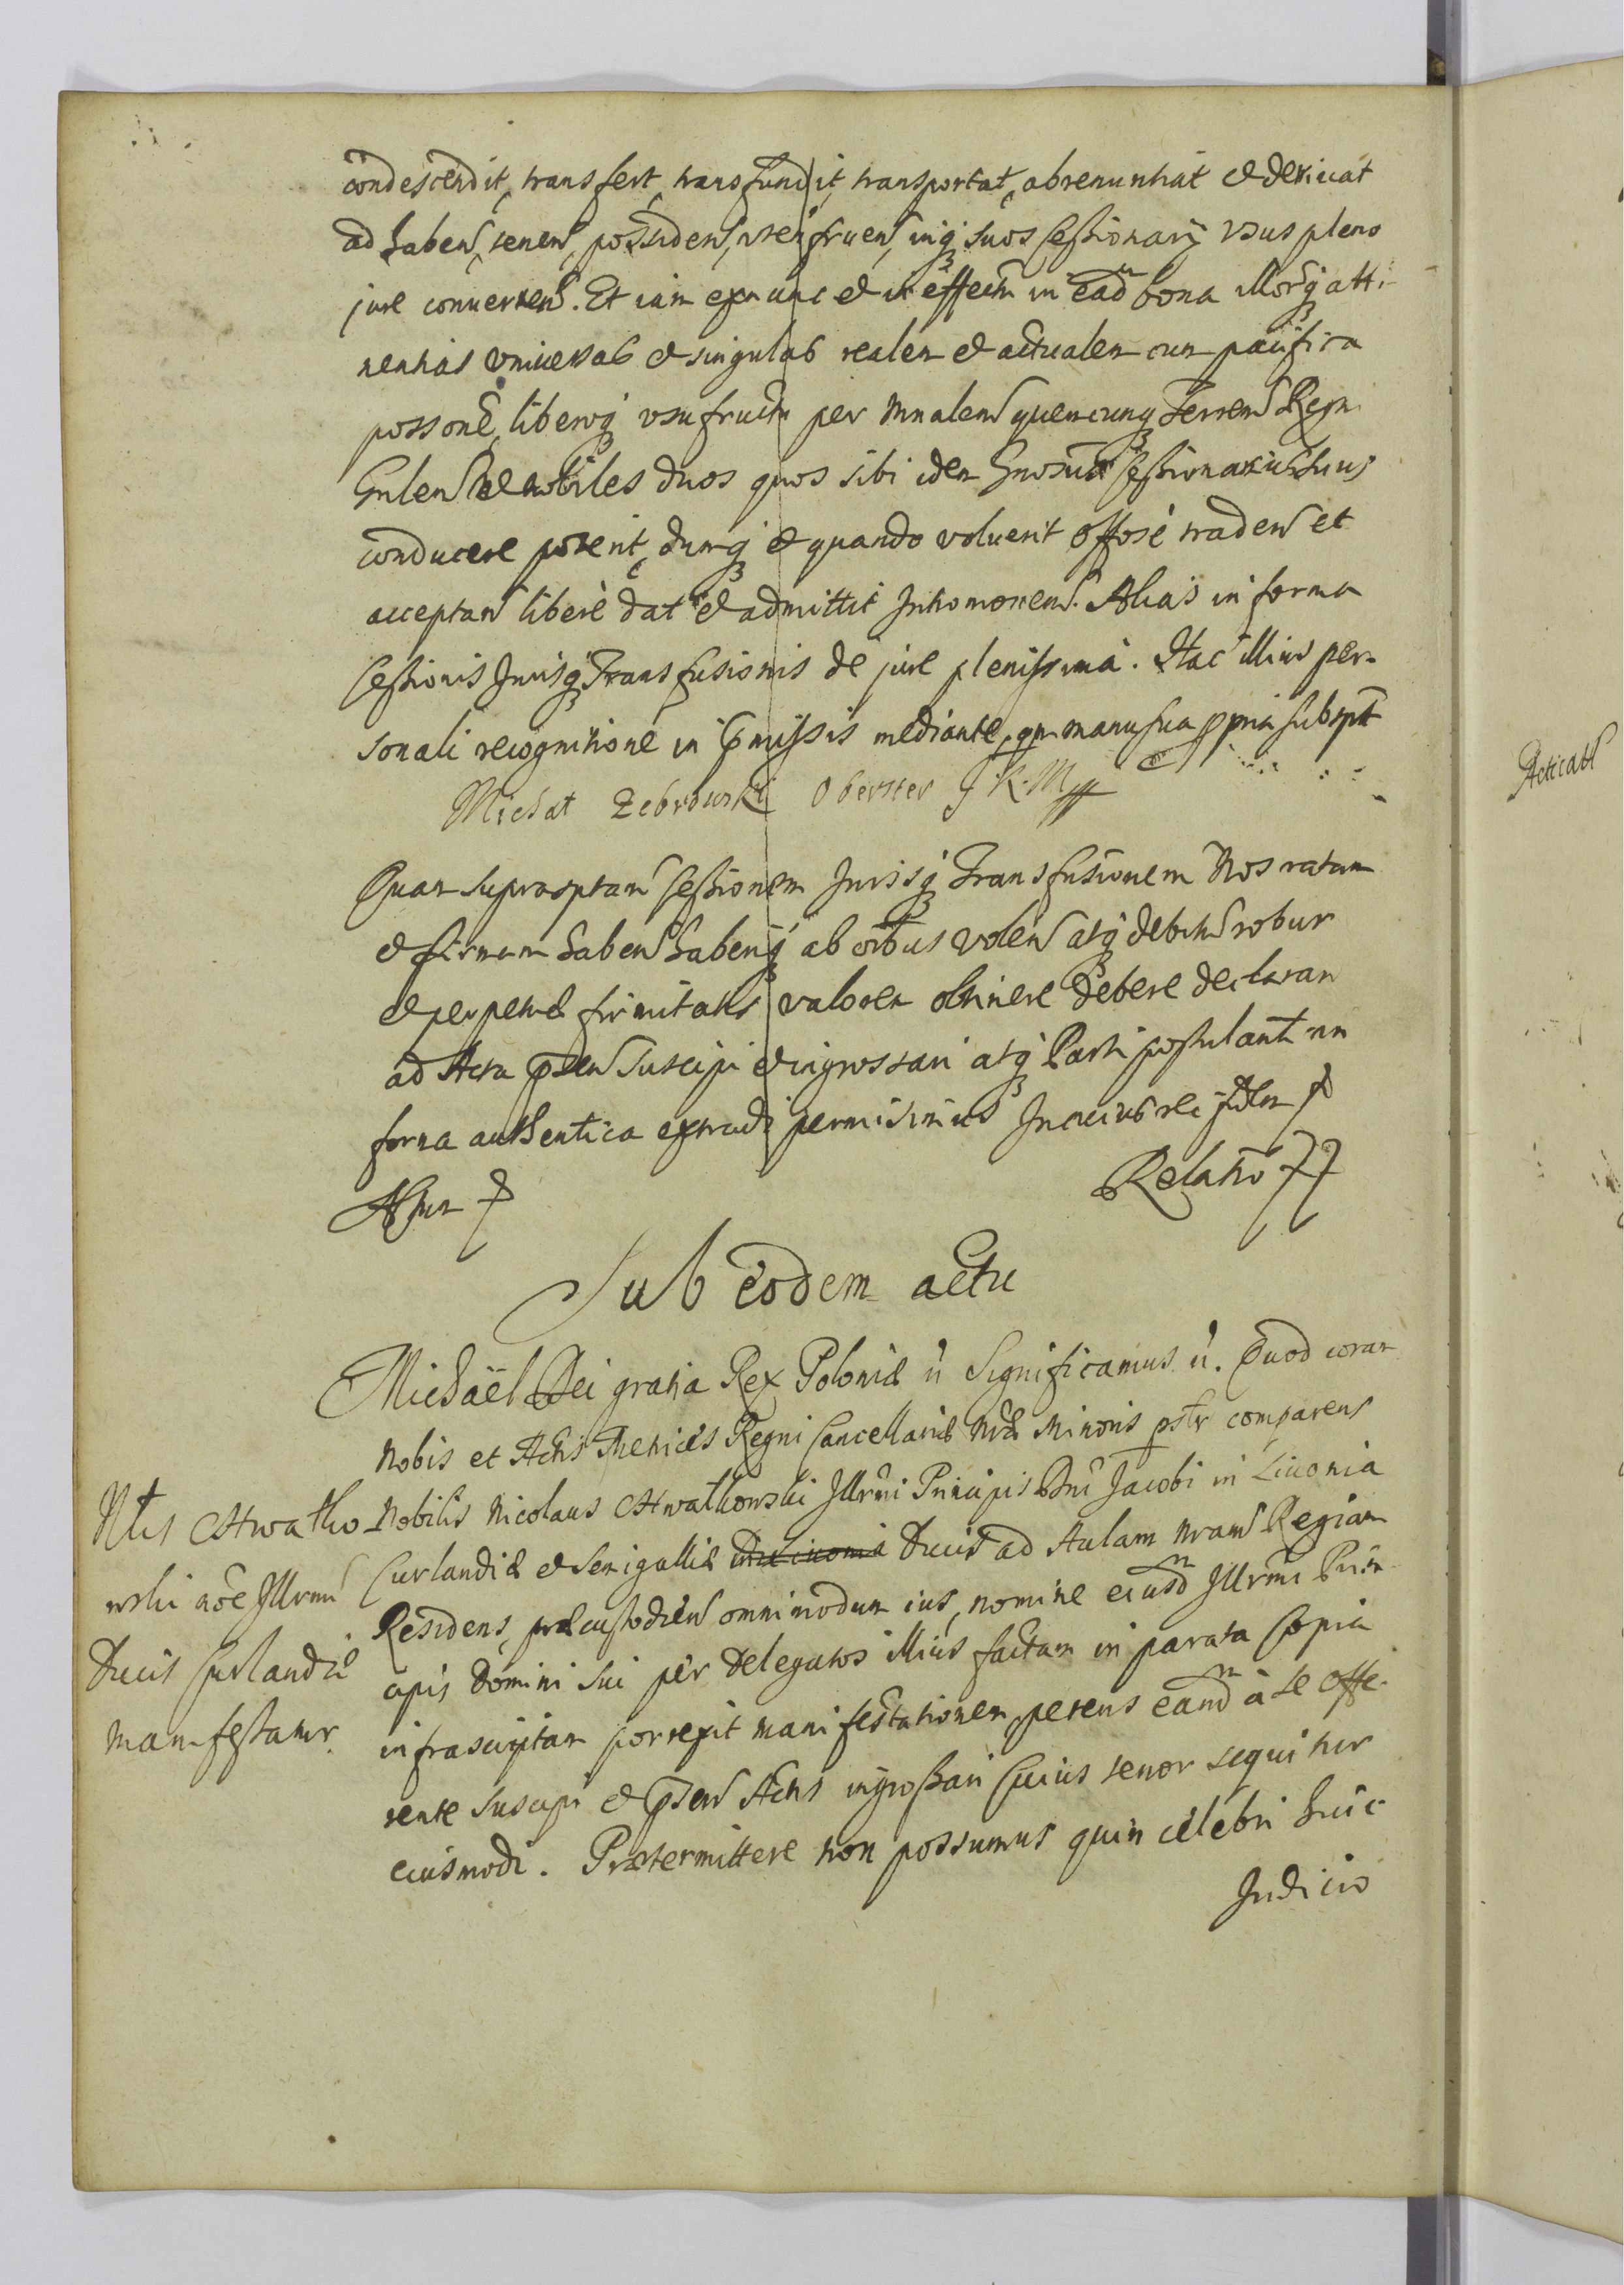 condescendit, transfert, transfundit, transportat, abrenuntiat et deriuat
ad haben, tenen, possiden, uten fruen, inq suos Cessionarij usus pleno
jure conuerten. Et iam ex nunc et in effectu in ead bona illorq atti-
nentias vniuersas et singulas realem et actualem cum pacifica
possone, liberoq usufructu per Mnalem quemcunq Terren Regn
Gnlem et nobiles duos quos sibi idem Gnosus Cessionarius suus
conducere poterit, dumq et quando voluerit offose traden et
acceptan libere dat et admittit Intromonem. Alias in forma
Cessionis Jurisq Transfusionis de jure plenissima. Hac illius per-
sonali recognitione in pmissis mediante, qm manu sua ppria subspt
Michał Zebrowski Oberster J K M
Quam suprasptam Cessionem Jurisq Transfusionem Nos ratam
et firmam haben haberiq ab oibus volen atq debitu robur
et perpetuæ firmitatis valorem obtinere debere declaran
ad Acta psen suscipi et ingrossari atq Parti postulanti in
forma authentica extradi permisimus In cuius rei fidem
Actum
Relatio
Sub eodem actu
Michaël Dei gratia Rex Poloniæ ꝛc Significamus ꝛc. Quod coram
Nobis et Actis Metrices Regni Cancellariæ Nræ Minoris psltr comparens
Nobilis Nicolaus Chwalkowski Illrmi Principis Dni Jacobi in Liuonia
Curlandiæ et Semigalliæ in Liuonia Ducis ad Aulam Nram Regiam
Residens, præcustodien omnimodum ius, nomine eiusd Illrmi Prin-
cipis Domini sui per Delegatos illius factam in parata copia
infrascriptam porrexit manifestationem, petens eand à se offe-
rente suscipi et psen Actis ingrossari Cuius tenor sequitur
eiusmodi. Prætermittere non possumus quin celebri huic
Judicio
Nlis Chwalko
wski noe Illrmi
Ducis Curlandiæ
Manifestatur